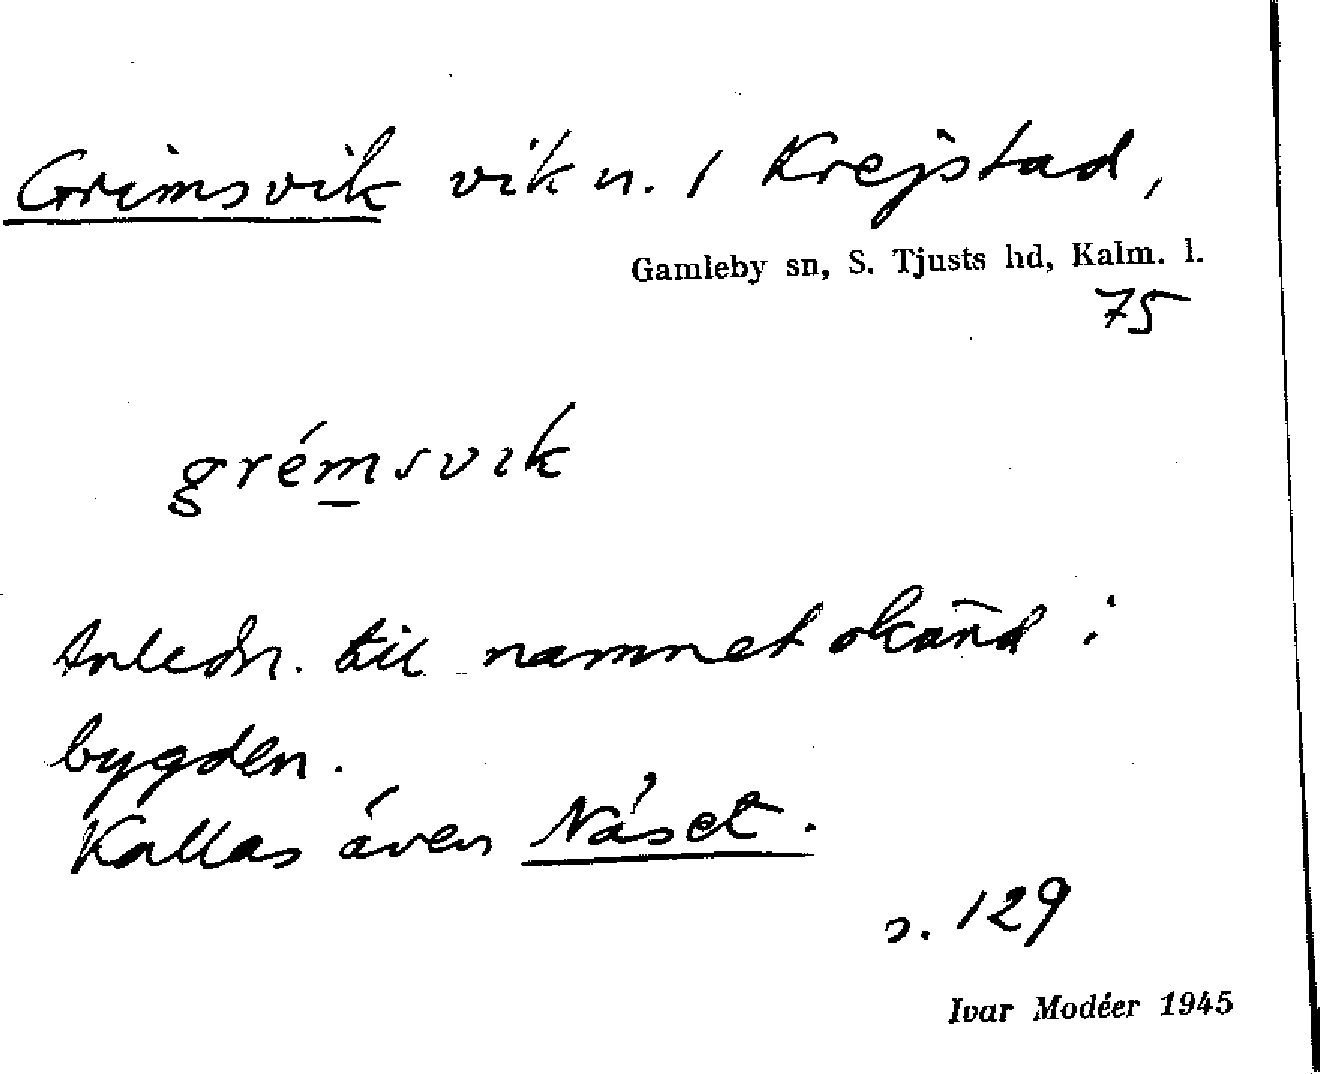 Grimsvik vik n. / Krejstad,
Gamleby sn, S. Tjusts hd, Kalm. l.
75
grémsvik
Anledn. till namnet okänd i
bygden.
Kallas även Näset.
s. 129
Ivar Modéer 1945